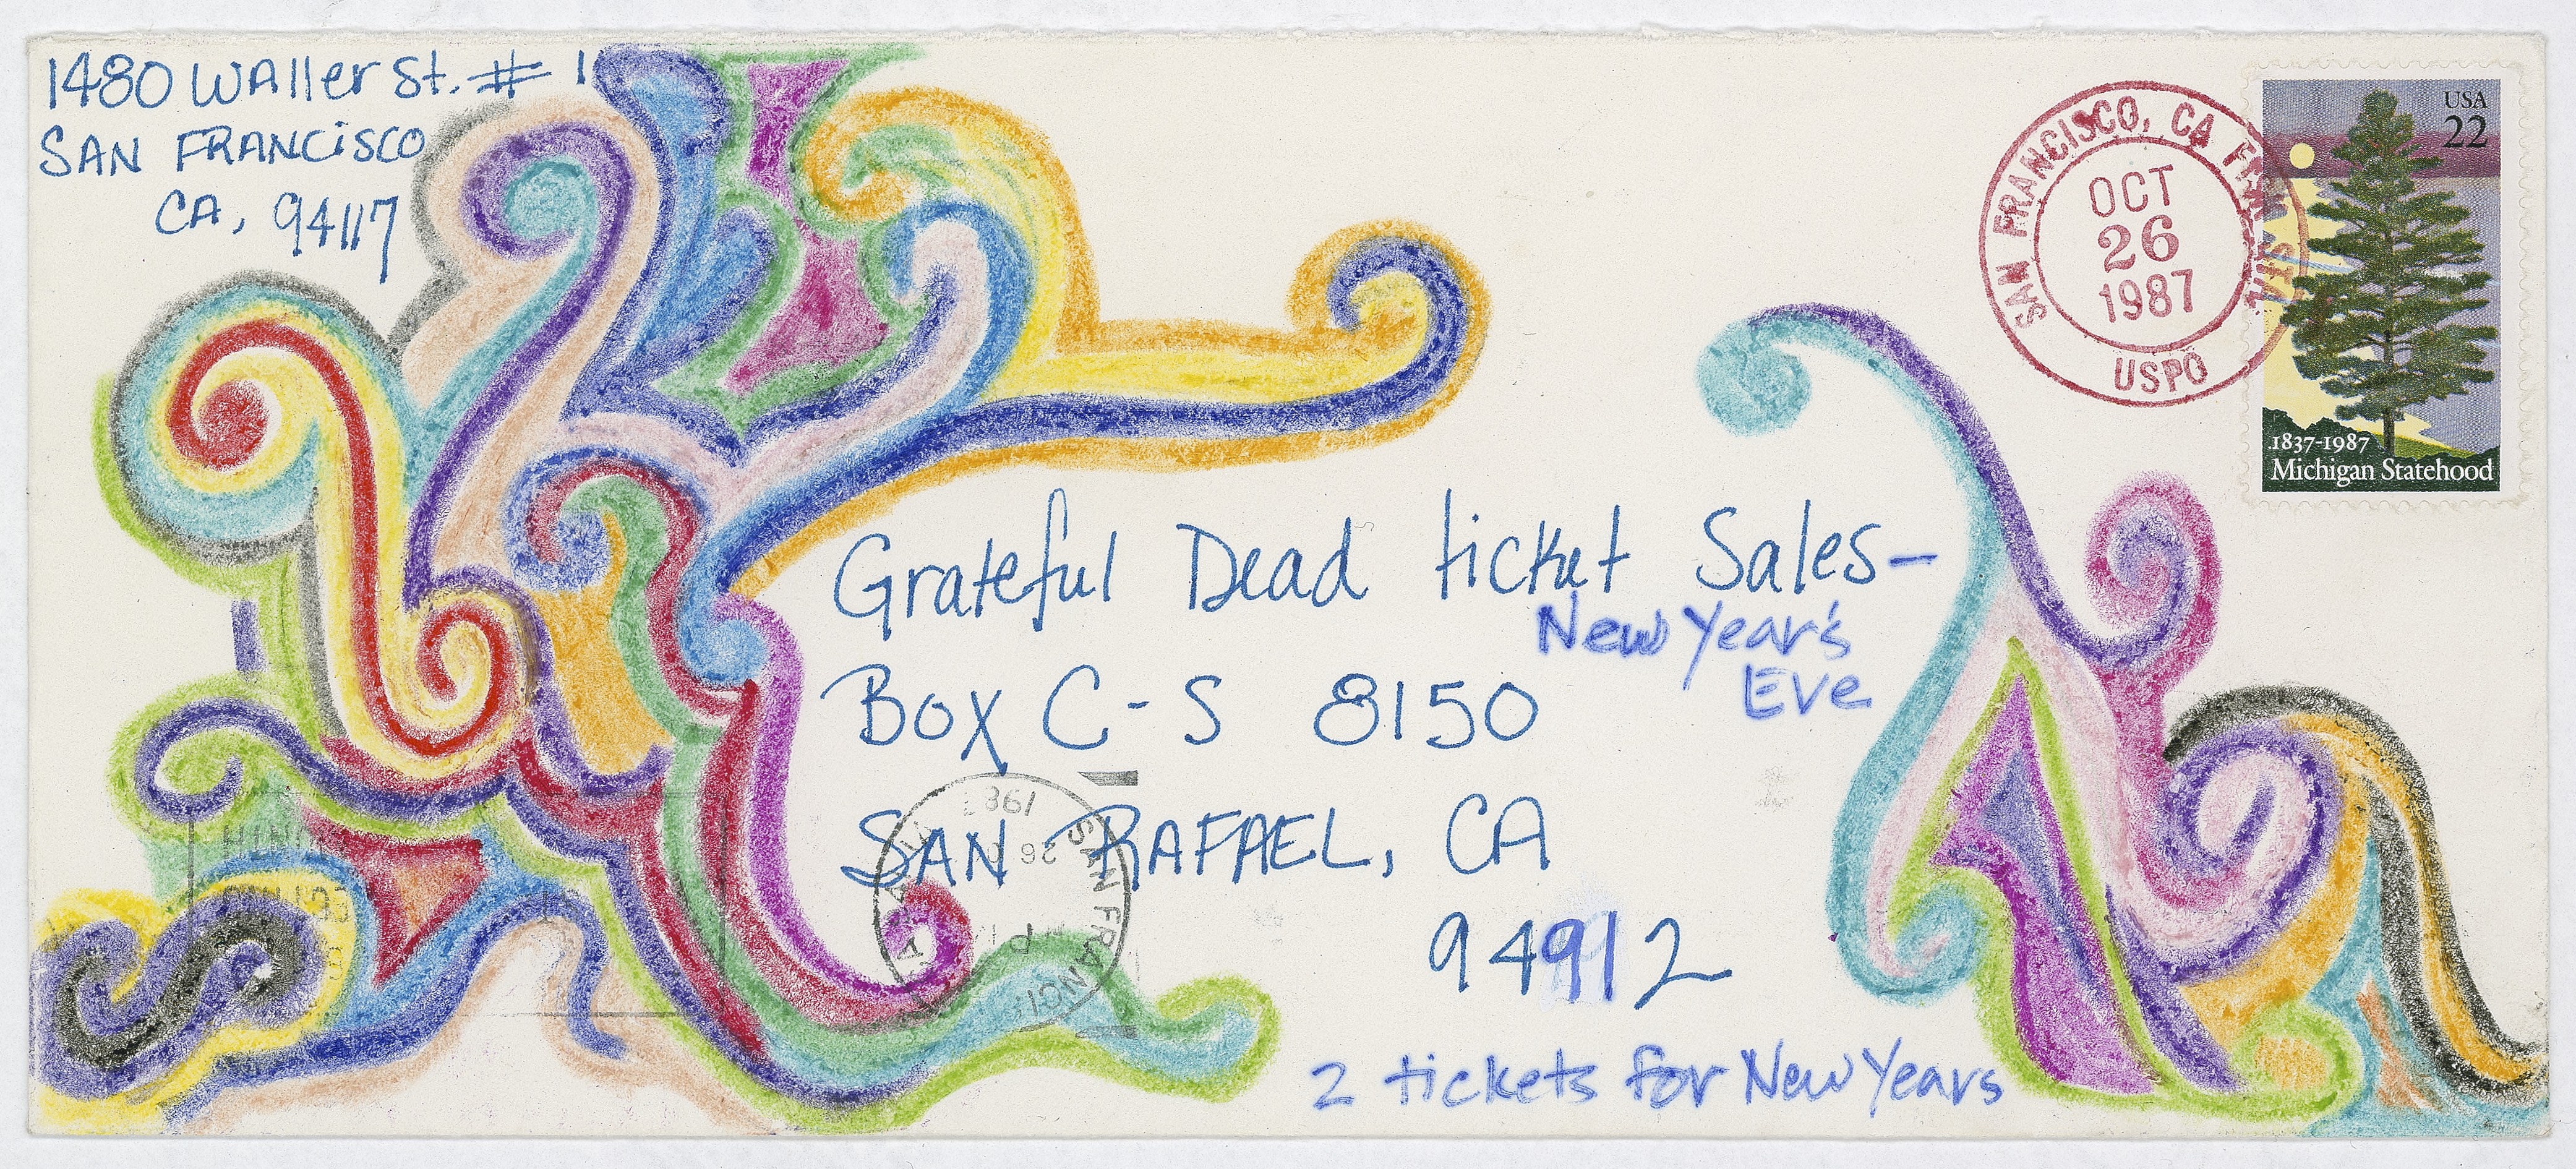 1480 Waller St. # 1
SAN FRANCISCO
CA, 94117
SAN FRANCISCO, CA
OCT
26
1987
USPO
USA
22
1837-1987
Michigan Statehood
Grateful Dead ticket Sales—
New Year's
Eve
Box C-S 8150
SAN RAFAEL, CA
94912
2 tickets for New Years
SAN FRANCI
26
PM
198